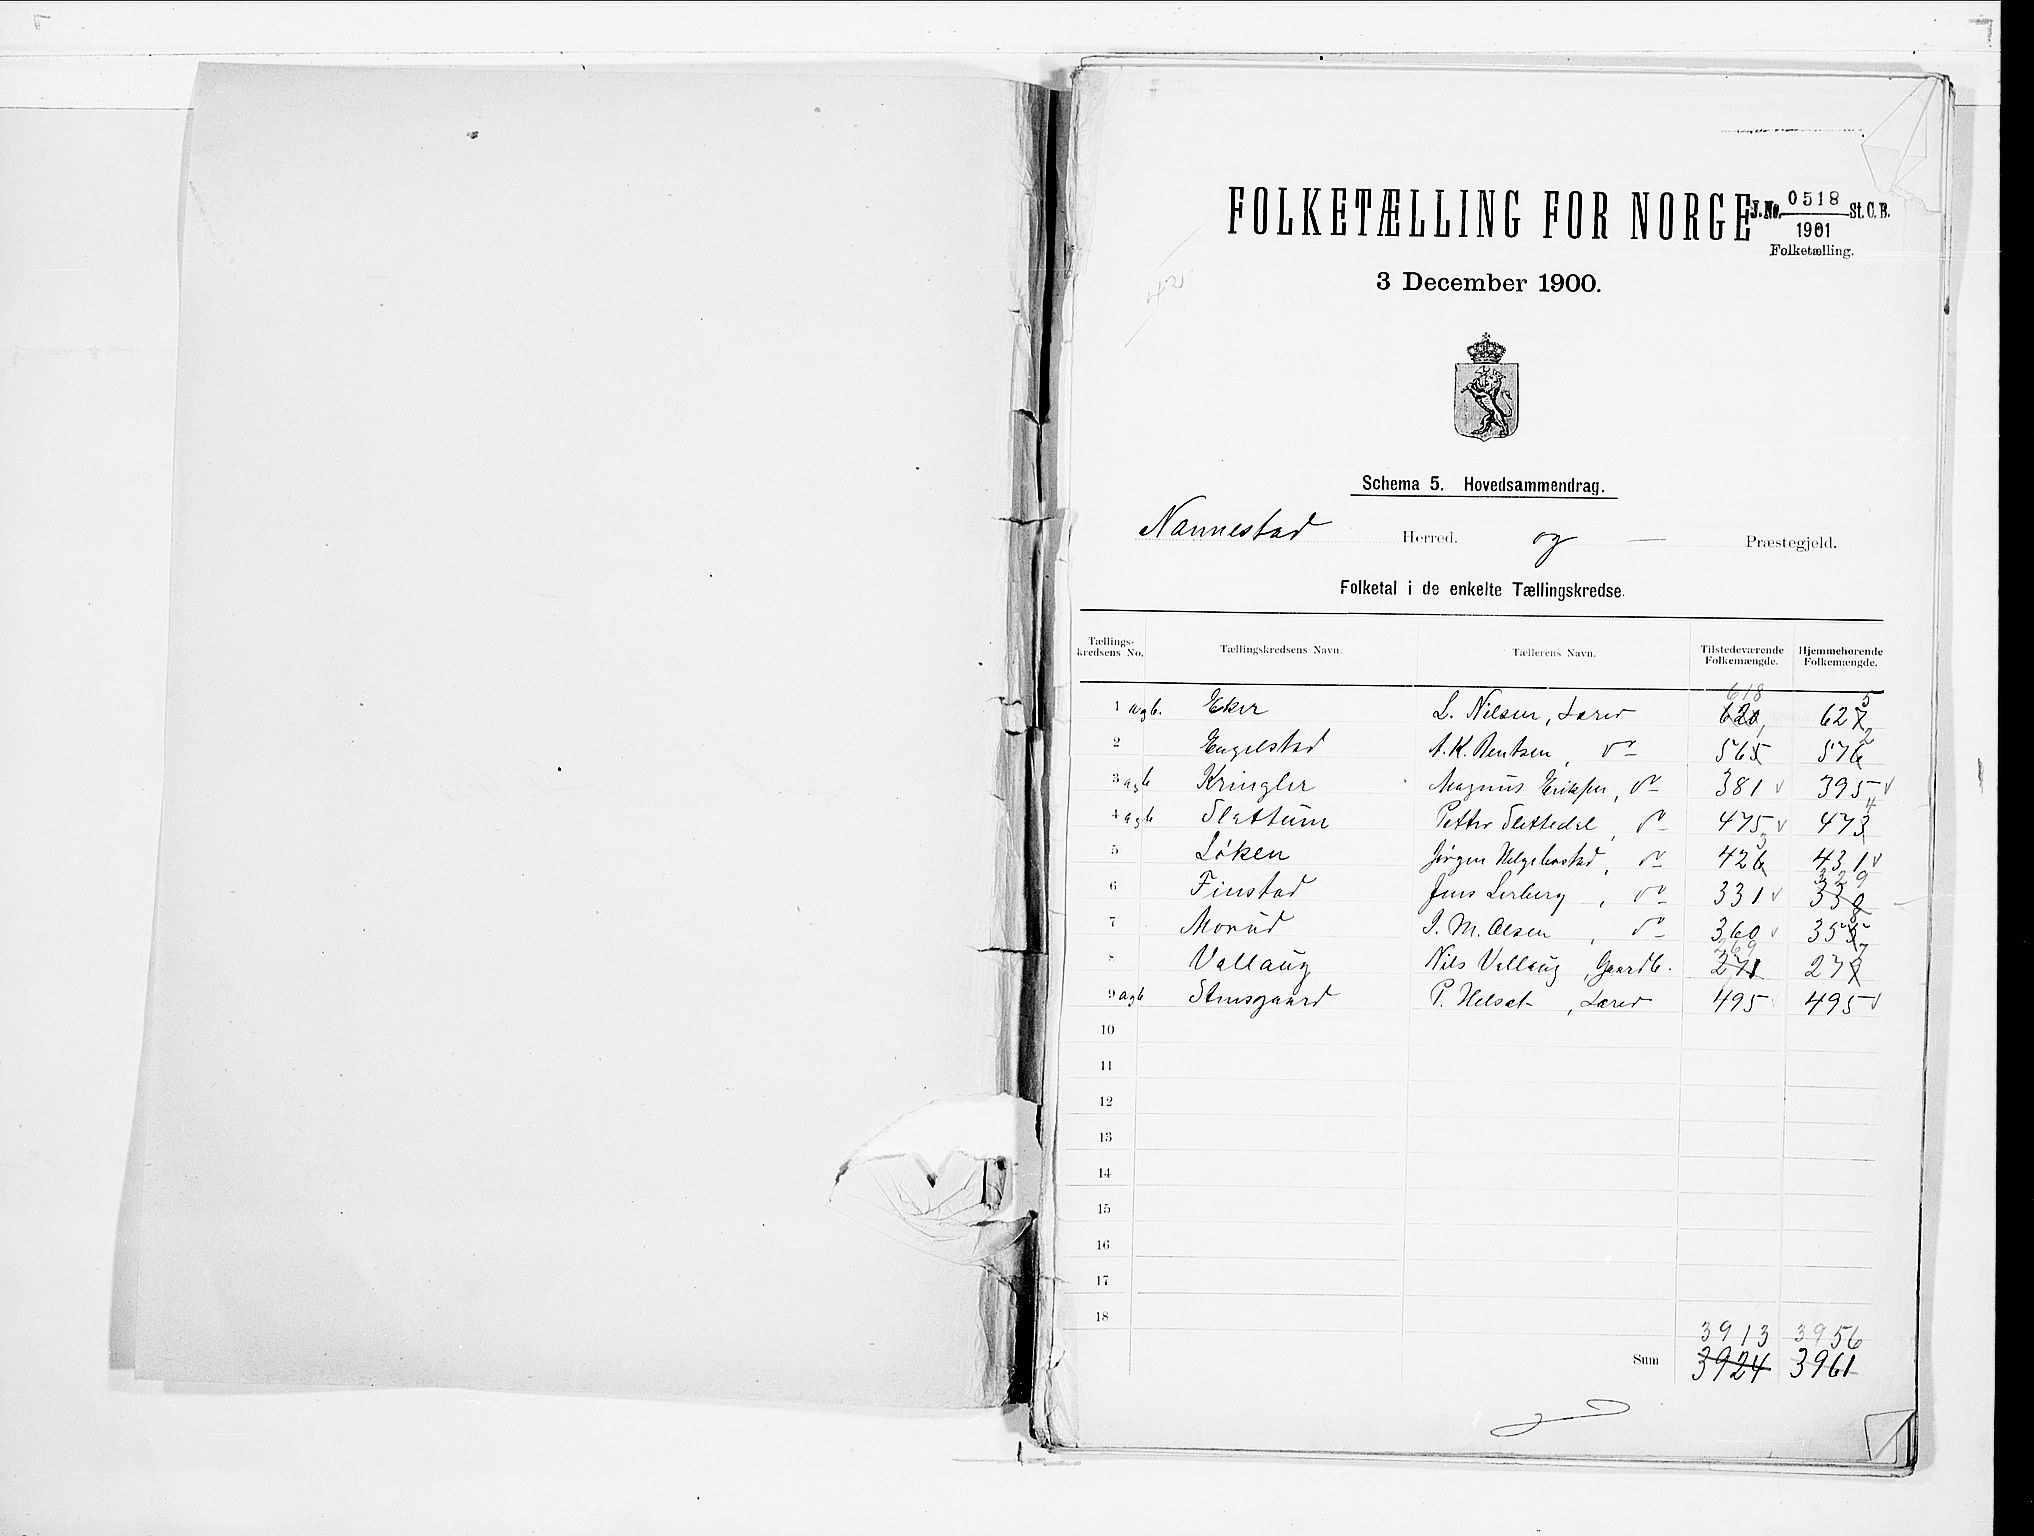 FOLKETÆLLING FOR NORGE
J. No. 0518 St. C. B.
1901
Folketælling.
3 December 1900.
42
Schema 5. Hovedsammendrag.
Nannestad Herred. og — Præstegjeld.
Folketal i de enkelte Tællingskredse.
Tællings-kredsens No. Tællingskredsens Navn. Tællerens Navn. Tilstedeværende Folkemængde. Hjemmehørende Folkemængde.
618 5
1 a g b. Eker L. Nilsen, Lærer 620, 627
2
2 Engelstad A. K. Bentsen, do 565 576
3 a g b Kringler Magnus Eriksen, do 381 v 395 v
4
4 a g b Slattum Petter Slettedal, do 475 v 473
3
5 Løken Jørgen Helgebostad, do 426 431 v
329
6 Finstad Jens Lerberg, do 331 v 330
8
7 Morud I. M. Olsen, do 360 v 355
269 7
8 Vallaug Nils Vallaug, Gaardb. 271 279
9 a g b Stensgaard P. Helset, Lærer 495 495 v
10
11
12
13
14
15
16
17
18
3913 3956
Sum 3924 3961